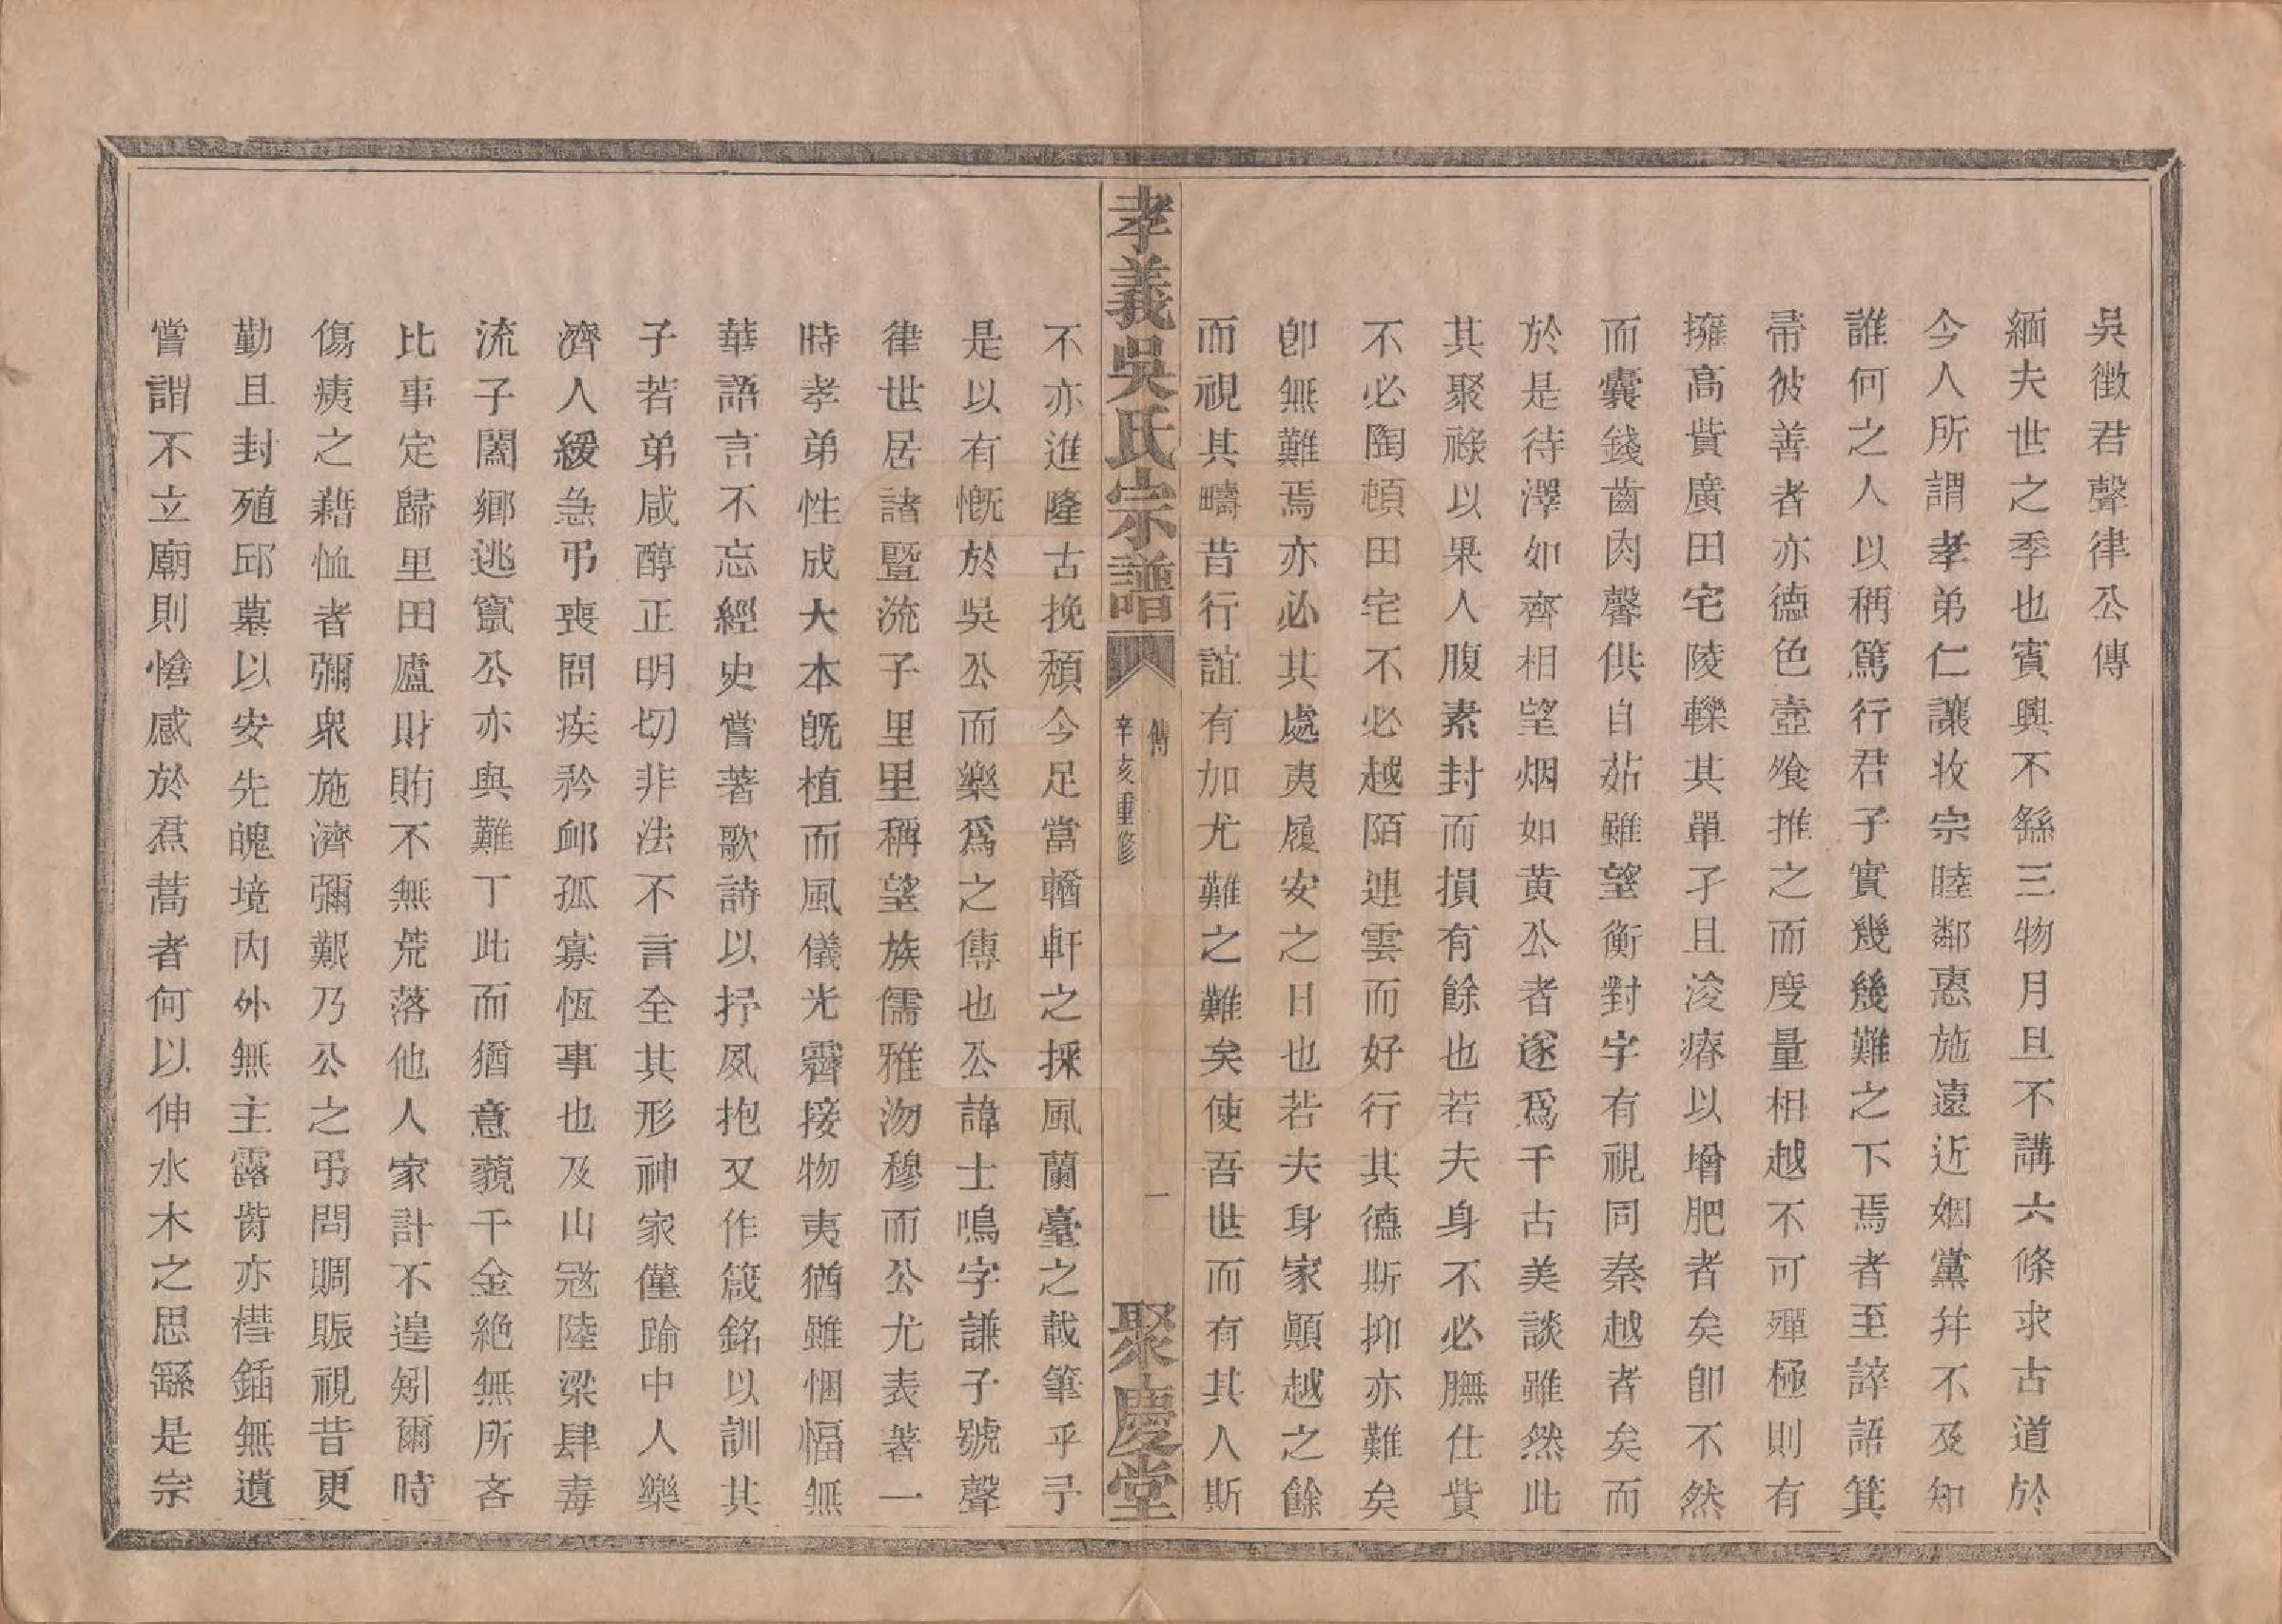 吳徵君聲律公傳
緬夫世之季也賓興不繇三物月旦不講六條求古道於
今人所謂孝弟仁讓收宗睦鄰惠施遠近姻黨幷不及知
誰何之人以稱篤行君子實幾幾難之下焉者至誶語箕
帚彼善者亦德色壺飧推之而度量相越不可殫極則有
擁高貲廣田宅陵轢其單孑且浚瘠以增肥者矣卽不然
而囊錢齒肉馨供自茹雖望衡對宇有視同秦越者矣而
於是待澤如齊相望烟如黄公者遂爲千古美談雖然此
其聚祿以果人腹素封而損有餘也若夫身不必膴仕貲
不必陶頓田宅不必越陌連雲而好行其德斯抑亦難矣
卽無難焉亦必其處夷履安之日也若夫身家顚越之餘
而視其疇昔行誼有加尤難之難矣使吾世而有其人斯
孝義吳氏宗譜
傳
辛亥重修
一
聚慶堂
不亦進隆古挽頹今足當輶軒之採風蘭臺之載筆乎予
是以有慨於吳公而樂爲之傳也公諱士鳴字謙子號聲
律世居諸暨流子里里稱望族儒雅沕穆而公尤表著一
時孝弟性成大本旣植而風儀光霽接物夷猶雖悃愊無
華語言不忘經史嘗著歌詩以抒夙抱又作箴銘以訓其
子若弟咸醇正明切非法不言全其形神家僅踰中人樂
濟人緩急弔喪問疾矜䘏孤寡恆事也及山冦陸梁肆毒
流子闔鄉逃竄公亦與難丁此而猶意藐千金絶無所吝
比事定歸里田廬財賄不無荒落他人家計不遑矧爾時
傷痍之藉恤者彌衆施濟彌艱乃公之弔問賙賑視昔更
勤且封殖邱墓以安先魄境内外無主露胔亦槥鍤無遺
嘗謂不立廟則愴感於焄蒿者何以伸水木之思繇是宗